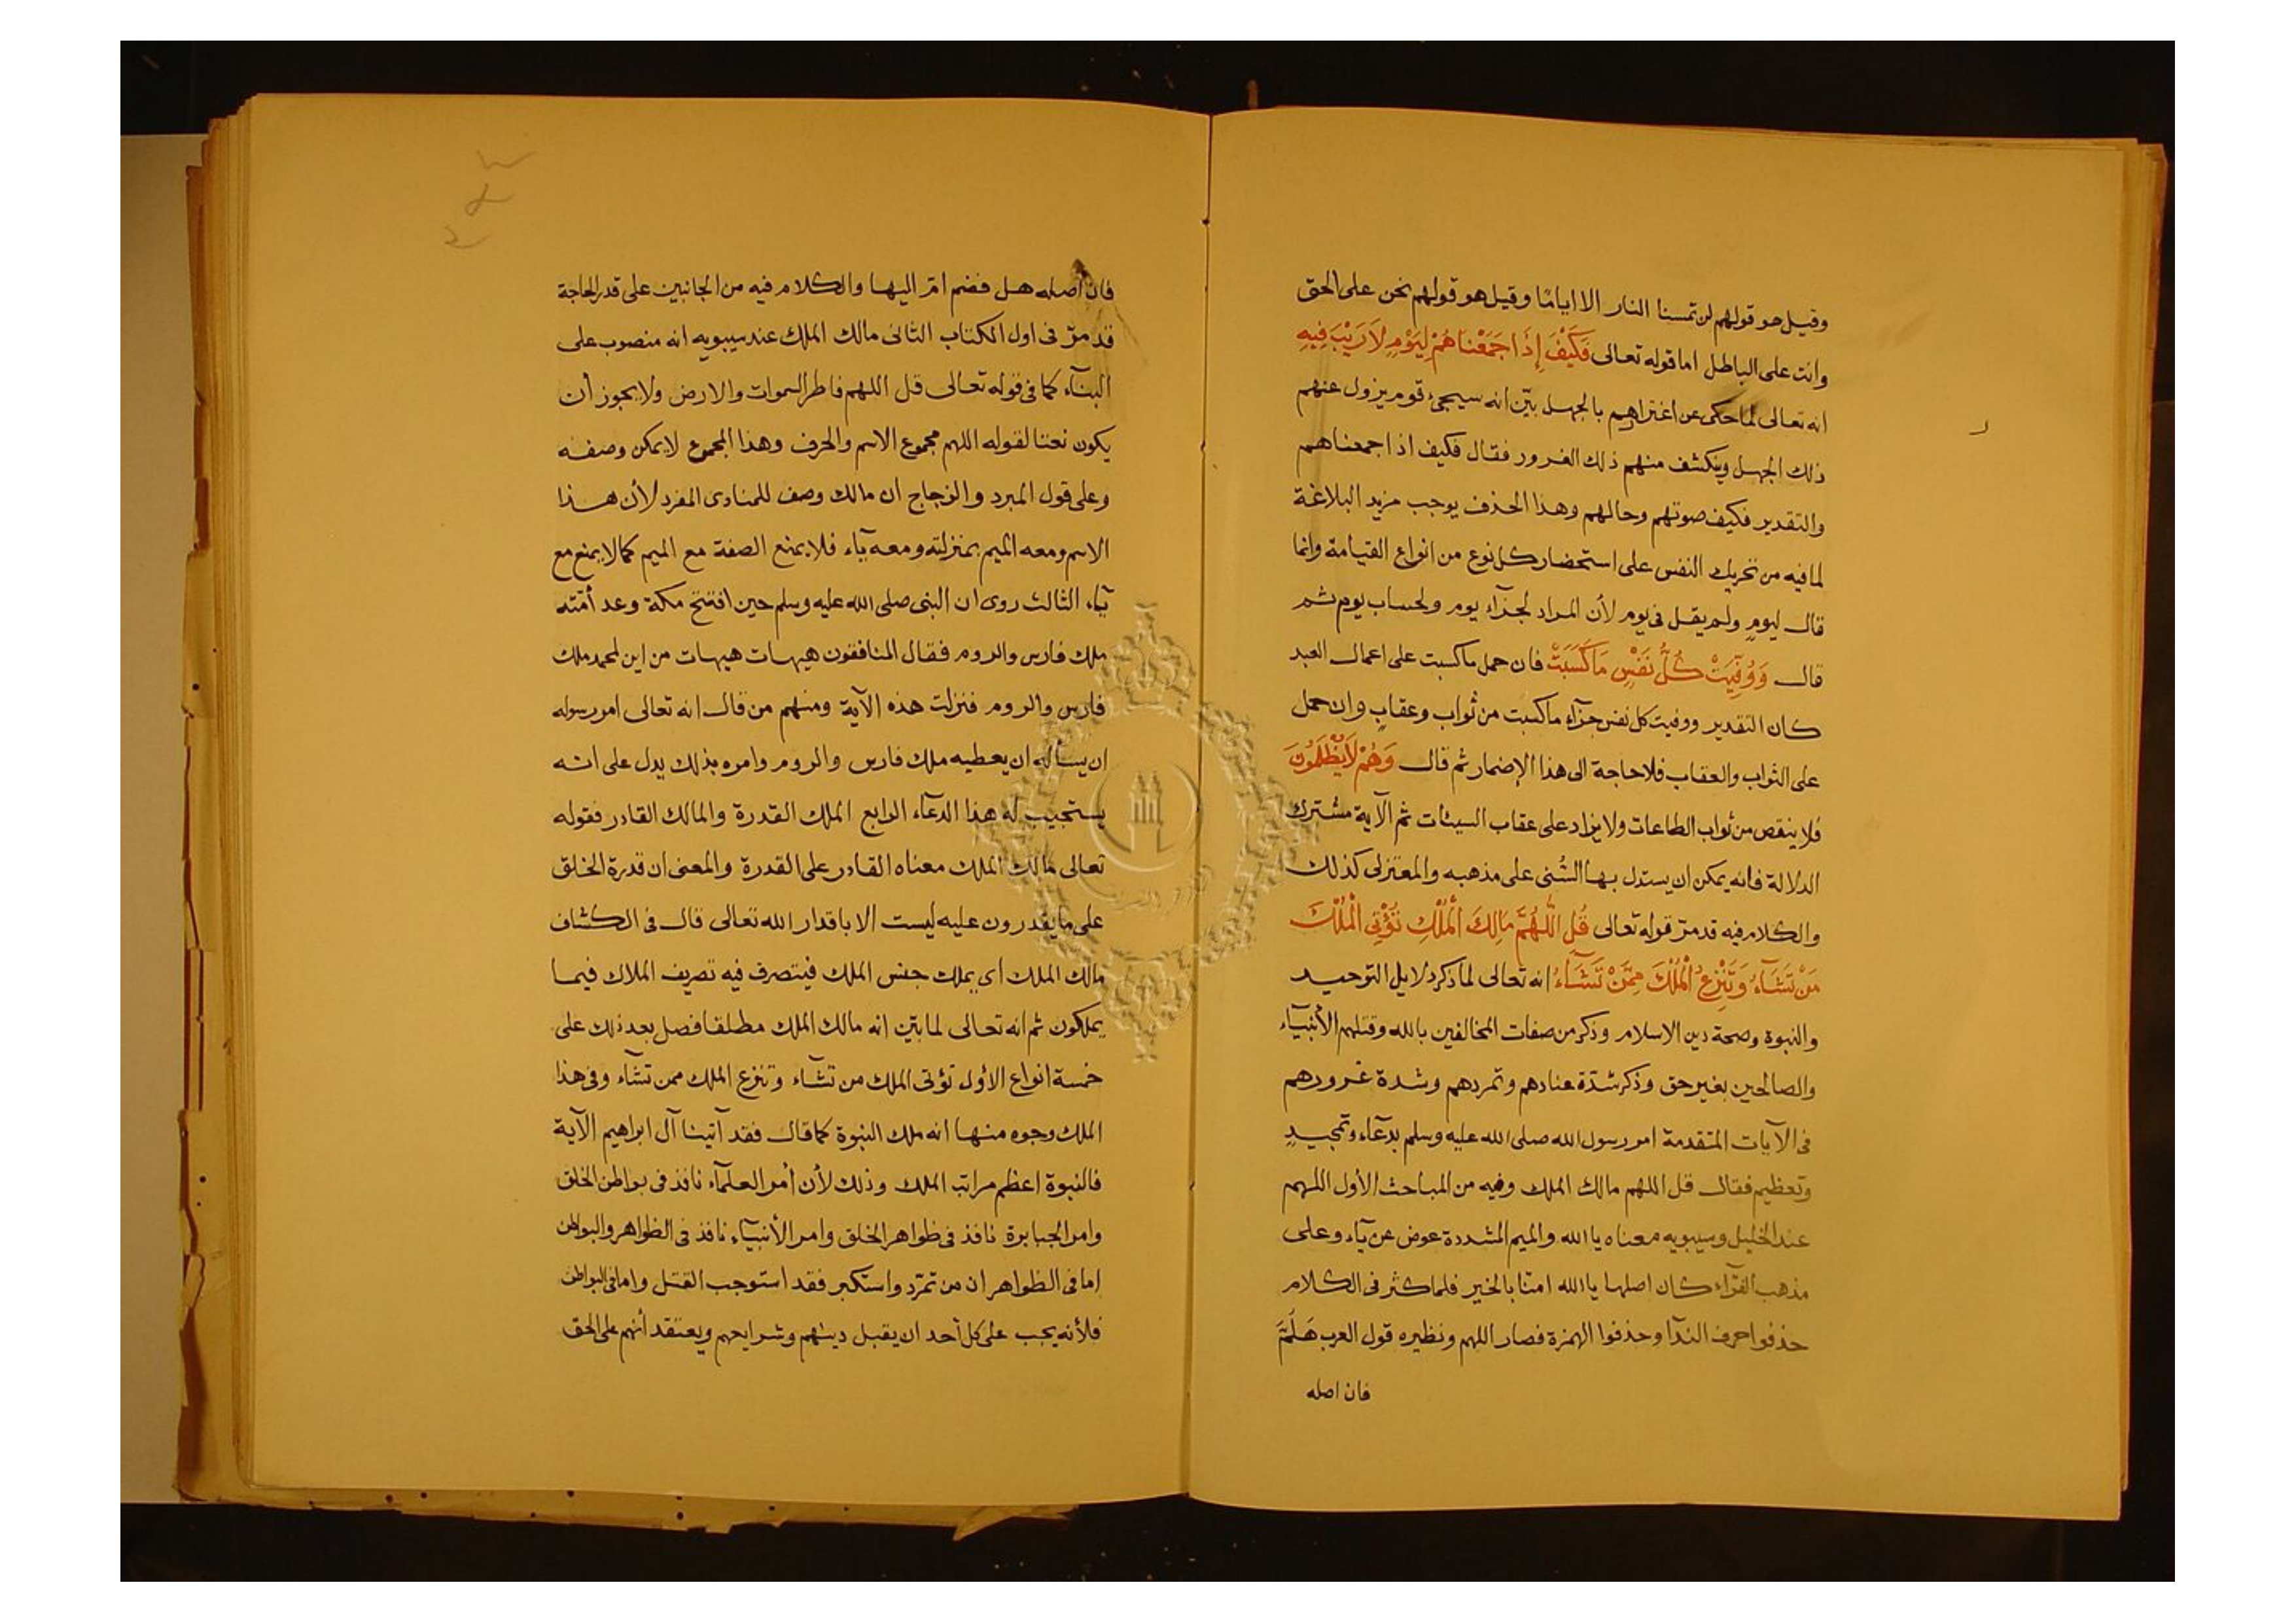 وقيل هو قولهم لن تمسنا النار الا اياما وقيل هو قولهم نحن على الحق
وانت على الباطل اما قوله تعالى فَكَيْفَ إِذَا جَمَعْنَاهُمْ لِيَوْمٍ لَا رَيْبَ فِيهِ
انه تعالى لما حكى عن اغترارهم بالجهل بيّن انه سيجئ قوم يزول عنهم
ذلك الجهل وينكشف منهم ذلك الغرور فقال فكيف اذا جمعناهم
والتقدير فكيف صوتهم وحالهم وهذا الحذف يوجب مزيد البلاغة
لما فيه من تحريك النفس على استحضار كل نوع من انواع القيامة وانما
قال ليومٍ ولم يقل فى يوم لأن المراد لجزآء يوم ولحساب يوم ثم
قال وَوُفِّيَتْ كُلُّ نَفْسٍ مَاكَسَبَتْ فان حمل ماكسبت على اعمال العبد
كان التقدير ووفيت كل نفس جزآء ماكسبت من ثواب وعقاب وان حمل
على الثواب والعقاب فلا حاجة الى هذا الإضمار ثم قال وَهُمْ لَايُظْلَمُونَ
فلا ينقص من ثواب الطاعات ولا يزاد على عقاب السيئات ثم الآية مشترك
الدلالة فانه يمكن ان يستدل بها السُّنى على مذهبه والمعتزلى كذلك
والكلام فيه قد مرّ قوله تعالى قُلِ اللَّهُمَّ مَالِكَ الْمُلْكِ تُؤْتِى الْمُلْكَ
مَنْ تَشَآءُ وَتَنْزِعُ الْمُلْكَ مِمَّنْ تَشَآءُ انه تعالى لما ذكر دلايل التوحيد
والنبوة وصحة دين الاسلام وذكر من صفات المخالفين بالله وقتلهم الأنبيآء
والصالحين بغير حق وذكر شدّة عنادهم وتمردهم وشدة غرورهم
فى الآيات المتقدمة امر رسول الله صلى الله عليه وسلم بدعآء وتمجيدٍ
وتعظيم فقال قل اللهم مالك الملك وفيه من المباحث الأول اللهم
عند الخليل وسيبويه معناه يا الله والميم المشددة عوض عن يآء وعلى
مذهب الفرّاء كان اصلها يا الله امنا بالخير فلما كثر فى الكلام
حذفوا حرف الندآ وحذفوا الهمزة فصار اللهم ونظيره قول العرب هَلُمَّ
فان اصله
فان اصله هل فضم امّ اليها والكلام فيه من الجانبين على قدر الحاجة
قد مرّ فى اول الكتاب الثانى مالك الملك عند سيبويه انه منصوب على
البنآء كما فى قوله تعالى قل اللهم فاطر السموات والارض ولا يجوز أن
يكون نعتا لقوله اللهم مجموع الاسم والحرف وهذا المجموع لا يمكن وصفه
وعلى قول المبرد والزجاج ان مالك وصف للمنادى المفرد لأن هذا
الاسم ومعه الميم بمنزلته ومعه يآء فلا يمنع الصفة مع الميم كما لا يمنع مع
يآء الثالث روى ان النبى صلى الله عليه وسلم حين افتتح مكة وعد أمّته
ملك فارس والروم فقال المنافقون هيهات هيهات من اين لمحمد ملك
فارس والروم فنزلت هذه الآية ومنهم من قال انه تعالى امر رسوله
ان يسأله ان يعطيه ملك فارس والروم وامره بذلك يدل على انه
يستجيب له هذا الدعآء الرابع الملك القدرة والمالك القادر فقوله
تعالى مالك الملك معناه القادر على القدرة والمعنى ان قدرة الخلق
على ما يقدرون عليه ليست الا باقدار الله تعالى قال فى الكشاف
مالك الملك أى يملك جنس الملك فيتصرف فيه تصريف الملاك فيما
يملكون ثم انه تعالى لما بيّن انه مالك الملك مطلقا فصل بعد ذلك على
خمسة انواع الأول تؤتى الملك من تشآء وتنزع الملك ممن تشآء وفى هذا
الملك وجوه منها انه ملك النبوة كما قال فقد آتينا آل ابراهيم الآية
فالنبوة اعظم مراتب الملك وذلك لأن أمر العلمآء نافذ فى بواطن الخلق
وامر الجبابرة نافذ فى ظواهر الخلق وامر الأنبيآء نافذ فى الظواهر والبواطن
اما فى الظواهر ان من تمرّد واستكبر فقد استوجب القتل واما فى البواطن
فلأنه يجب على كل أحد ان يقبل دينهم وشرايعهم ويعتقد أنهم على الحق